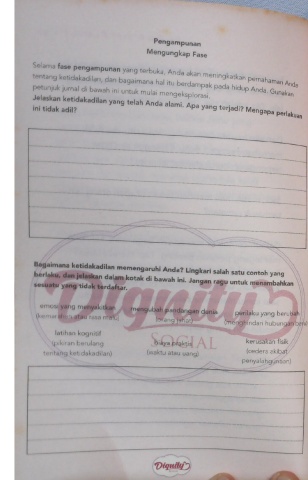 Pengampunan
Mengungkap Fase
Selama fase pengampunan yang terbuka, Anda akan meningkatkan pemahaman Anda
tentang ketidakadilan, dan bagaimana hal itu berdampak pada hidup Anda. Gunakan
petunjuk jurnal di bawah ini untuk mulai mengeksplorasi.
Jelaskan ketidakadilan yang telah Anda alami. Apa yang terjadi? Mengapa perlakuan
ini tidak adil?
Bagaimana ketidakadilan memengaruhi Anda? Lingkari salah satu contoh yang
berlaku, dan jelaskan dalam kotak di bawah ini. Jangan ragu untuk menambahkan
sesuatu yang tidak terdaftar.
emosi yang menyakitkan mengubah pandangan dunia perilaku yang berubah
(kemarahan atau rasa malu) (orang jahat) (menghindari hubungan
latihan kognitif biaya praktis kerusakan fisik
(pikiran berulang (waktu atau uang) (cedera akibat
tentang ketidakadilan) penyalahgunaan)
Dignity
SOSIAL
Dignity